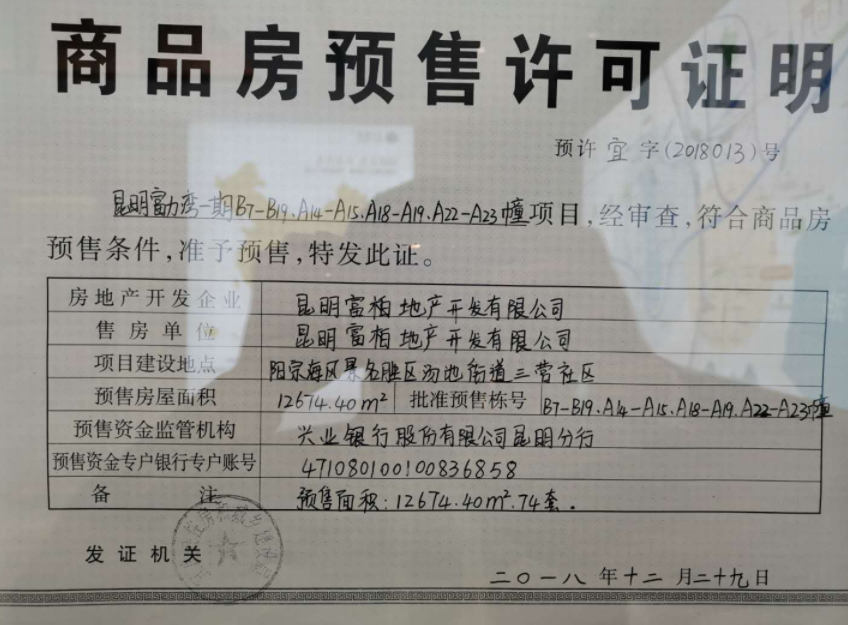 商品房预售许可证明
预许宜字(2018013)号
昆明富力湾一期B7-B19.A14-A15.A18-A19.A22-A23幢项目,经审查,符合商品房
预售条件,准予预售,特发此证。
房地产开发企业 昆明富柏地产开发有限公司
售房单位 昆明富柏地产开发有限公司
项目建设地点 阳宗海风景名胜区汤池街道三营社区
预售房屋面积 12674.40m² 批准预售栋号 B7-B19.A14-A15.A18-A19.A22-A23幢
预售资金监管机构 兴业银行股份有限公司昆明分行
预售资金专户银行专户账号 471080100100836858
备注 预售面积:12674.40m².74套.
发证机关
二〇一八年十二月二十九日